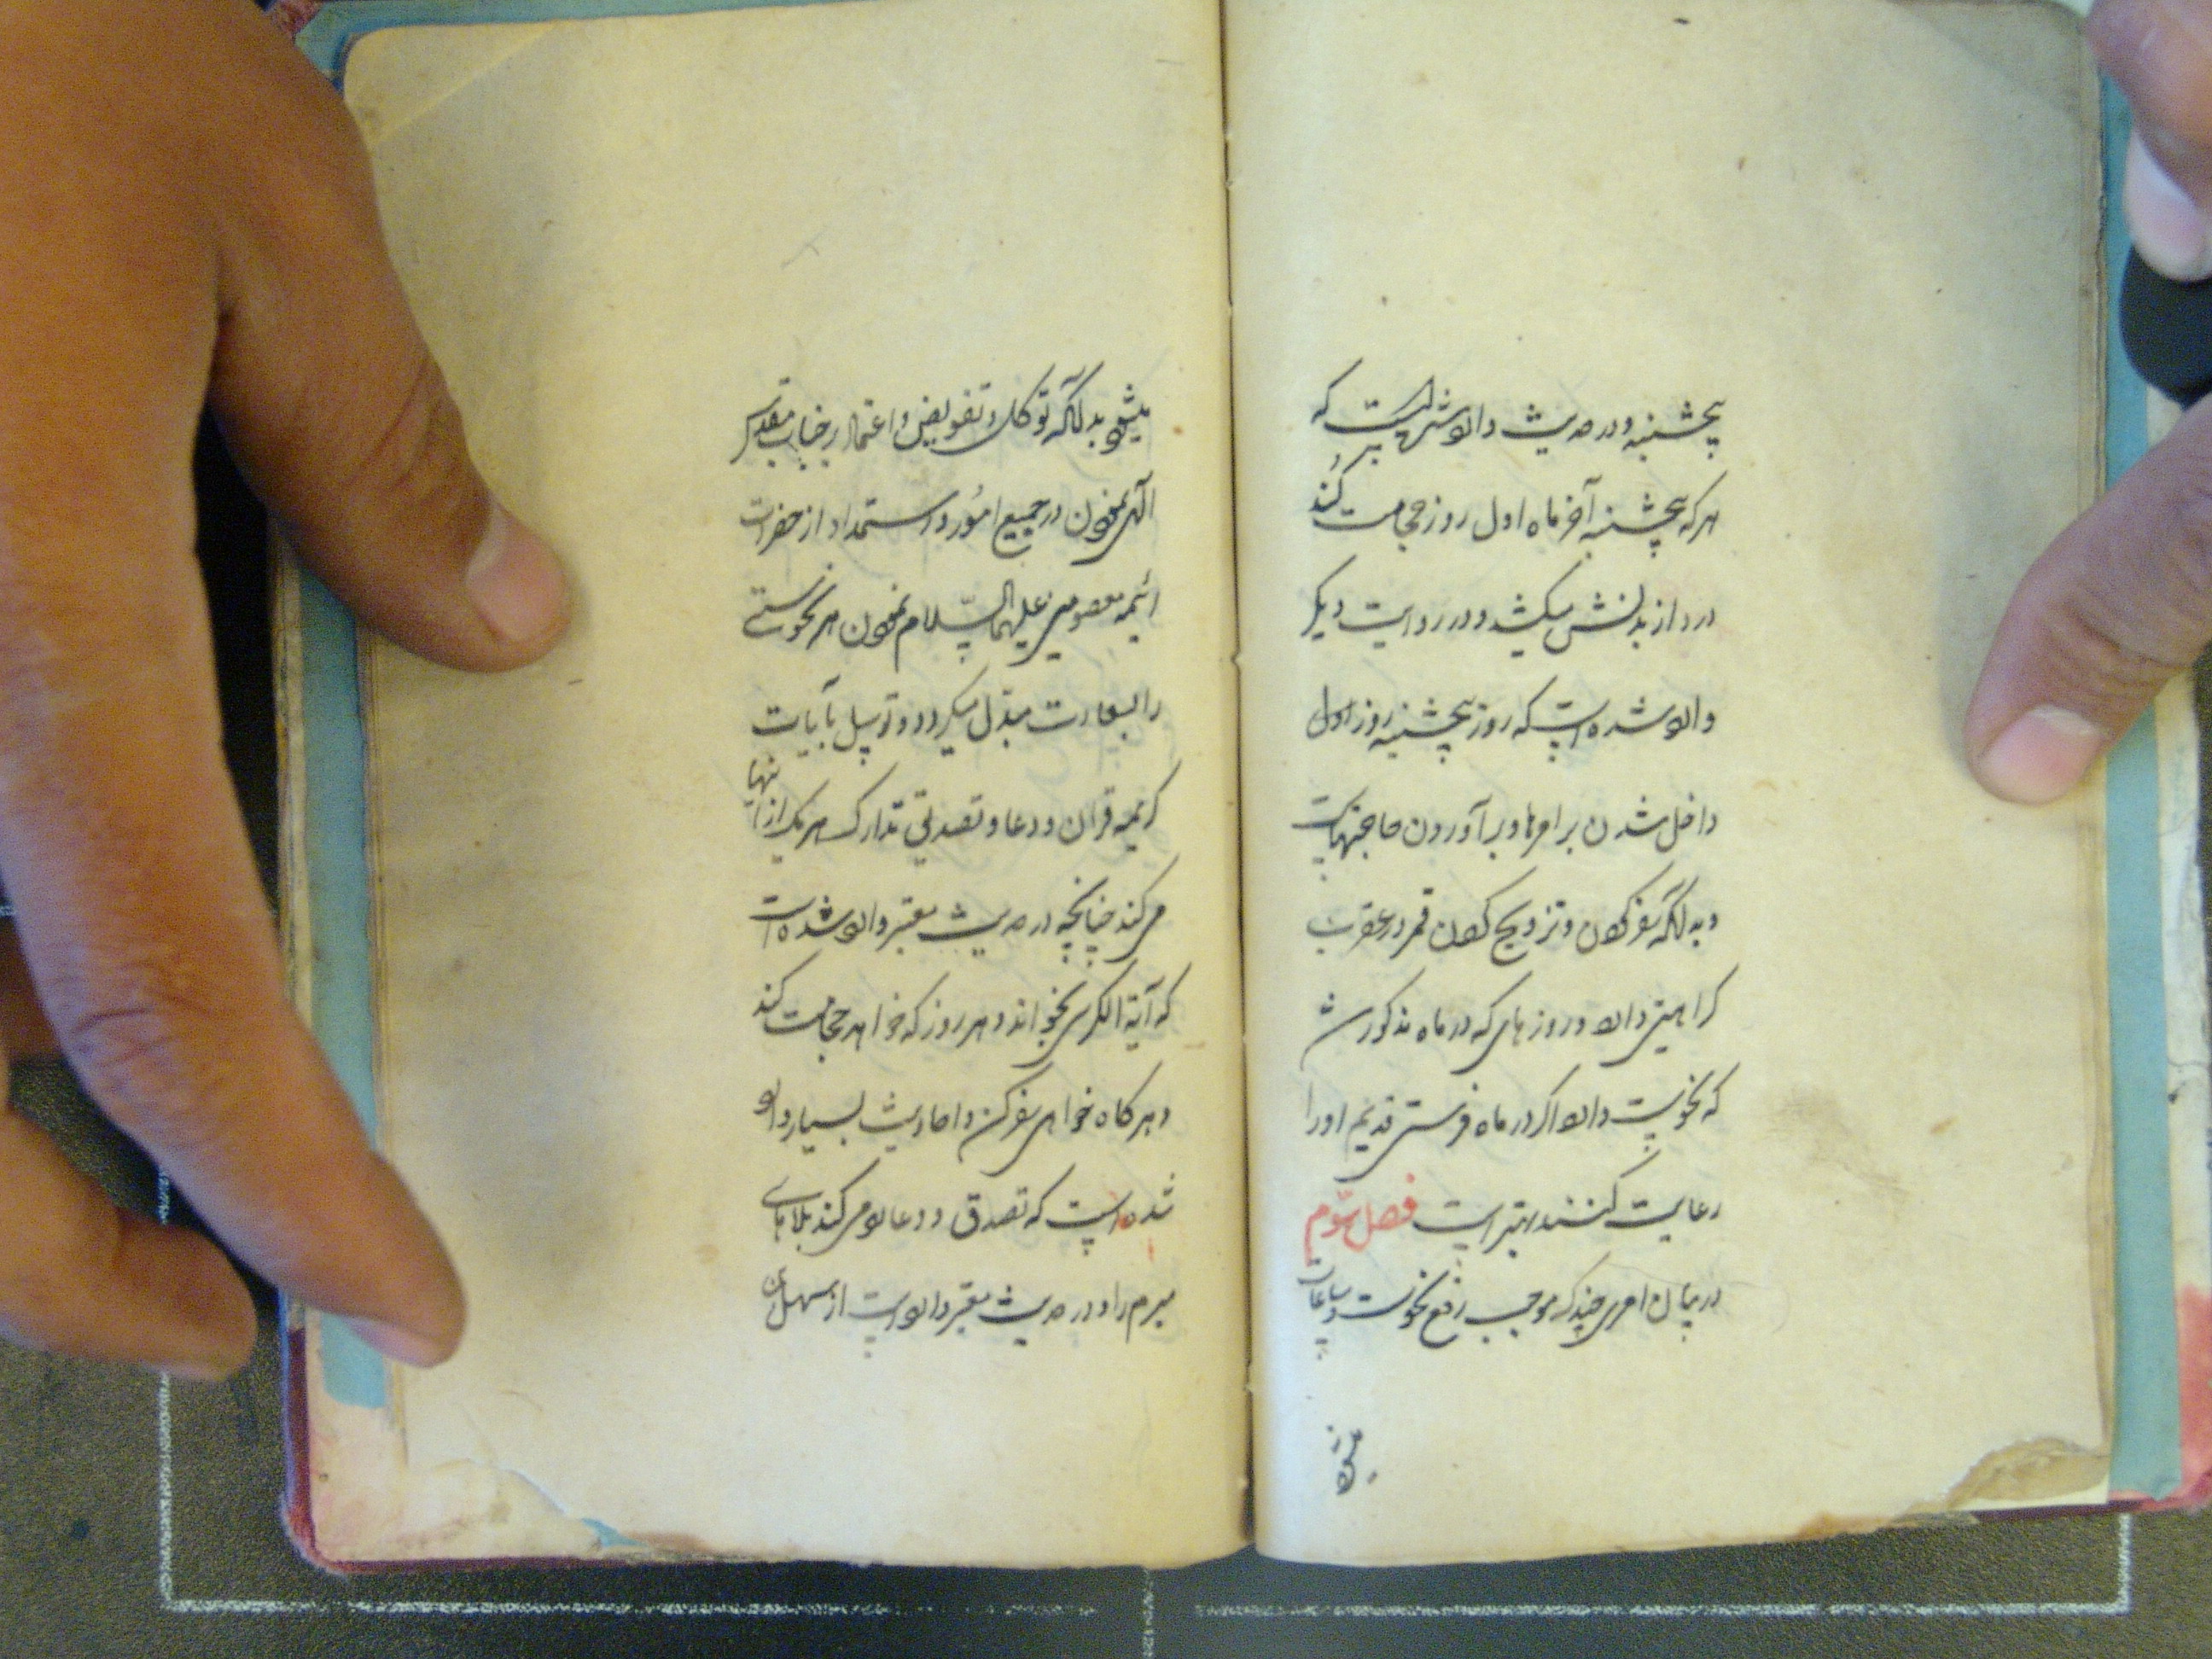 پنجشنبه و در حدیث وارد شده است که
هر که پنجشنبه آخر ماه اول روز حجامت کند
درد از بدنش میکشد و در روایت دیگر
وارد شده است که روز پنجشنبه روز اول
داخل شدن بر امرها و برآوردن حاجتهاست
و بدانکه سفر کردن و تزویج کردن قمر در عقرب
کراهیتی دارد و روزهای که در ماه مذکور شد
که نحوست دارد اگر در ماه فرس قدیم او را
رعایت کنند بهتر است فصل سوّم
در بیان امری چند که موجب رفع نحوست و ساعات
میشود
میشود بدانکه توکل و تفویض و اعتماد بر جناب مقدس
الهی نمودن در جمیع امُور و استمداد از حضرات
ائمه معصومین علیهم السّلام نمودن هر نحوستی
را بسعادت مبدّل میکردد و توسل بآیات
کریمه قران و دعا و تصدق تدارک هر یک از اینها
می کند چنانچه در حدیث معتبر وارد شده است
که آیة الکرسی بخواند و هر روز که خواهد حجامت کند
و هر کاه خواهی سفر کن و احادیث بسیار وارد
شده است که تصدق و دعا رد می کند بلاهای
مبرم را و در حدیث معتبر وارد است از سهل بن